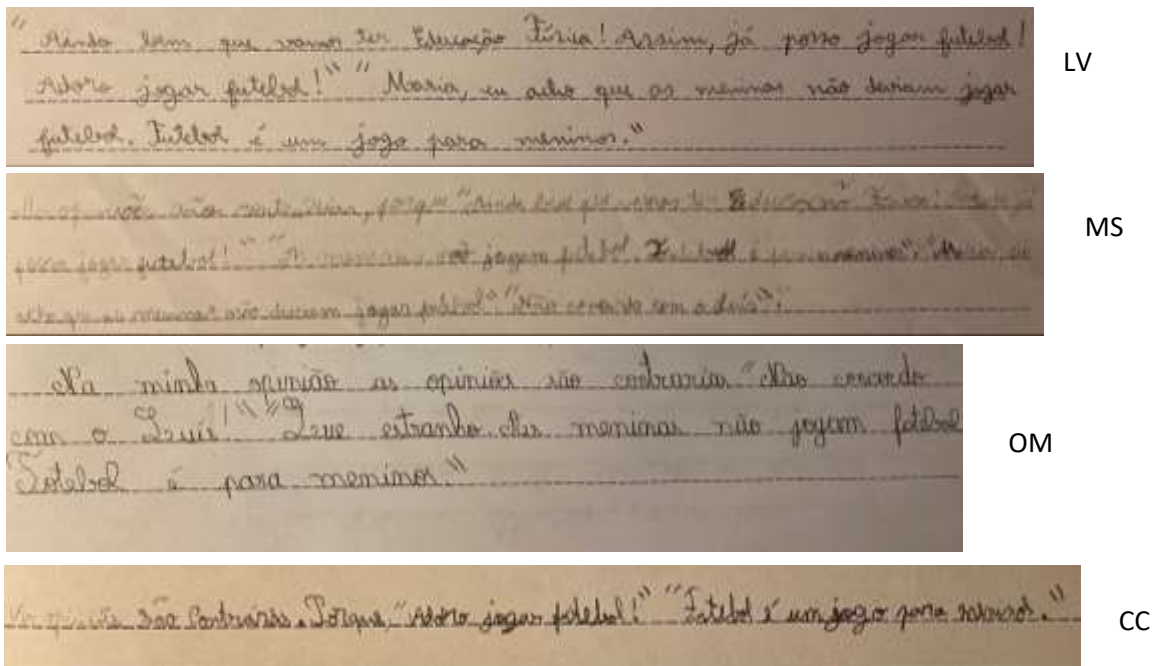 "Ainda bem que vamos ter Educação Física! Assim, já posso jogar futebol!
Adoro jogar futebol!" "Maria, eu acho que as meninas não deviam jogar
futebol. Futebol é um jogo para meninos."
LV
são contrárias, porque "Ainda bem que vamos ter Educação Física!
posso jogar futebol!" "As meninas não jogam futebol. Futebol é para meninos". "Maria, eu
acho que as meninas não deviam jogar futebol" "Não concordo com o Luís".
MS
Na minha opinião as opiniões são contrarias "Não concordo
com o Luís!" "Que estranho. As meninas não jogam futebol
Fotebol é para meninos."
OM
são contrarias. Porque, "Adoro jogar futebol!" "Futebol é um jogo para meninos."
CC